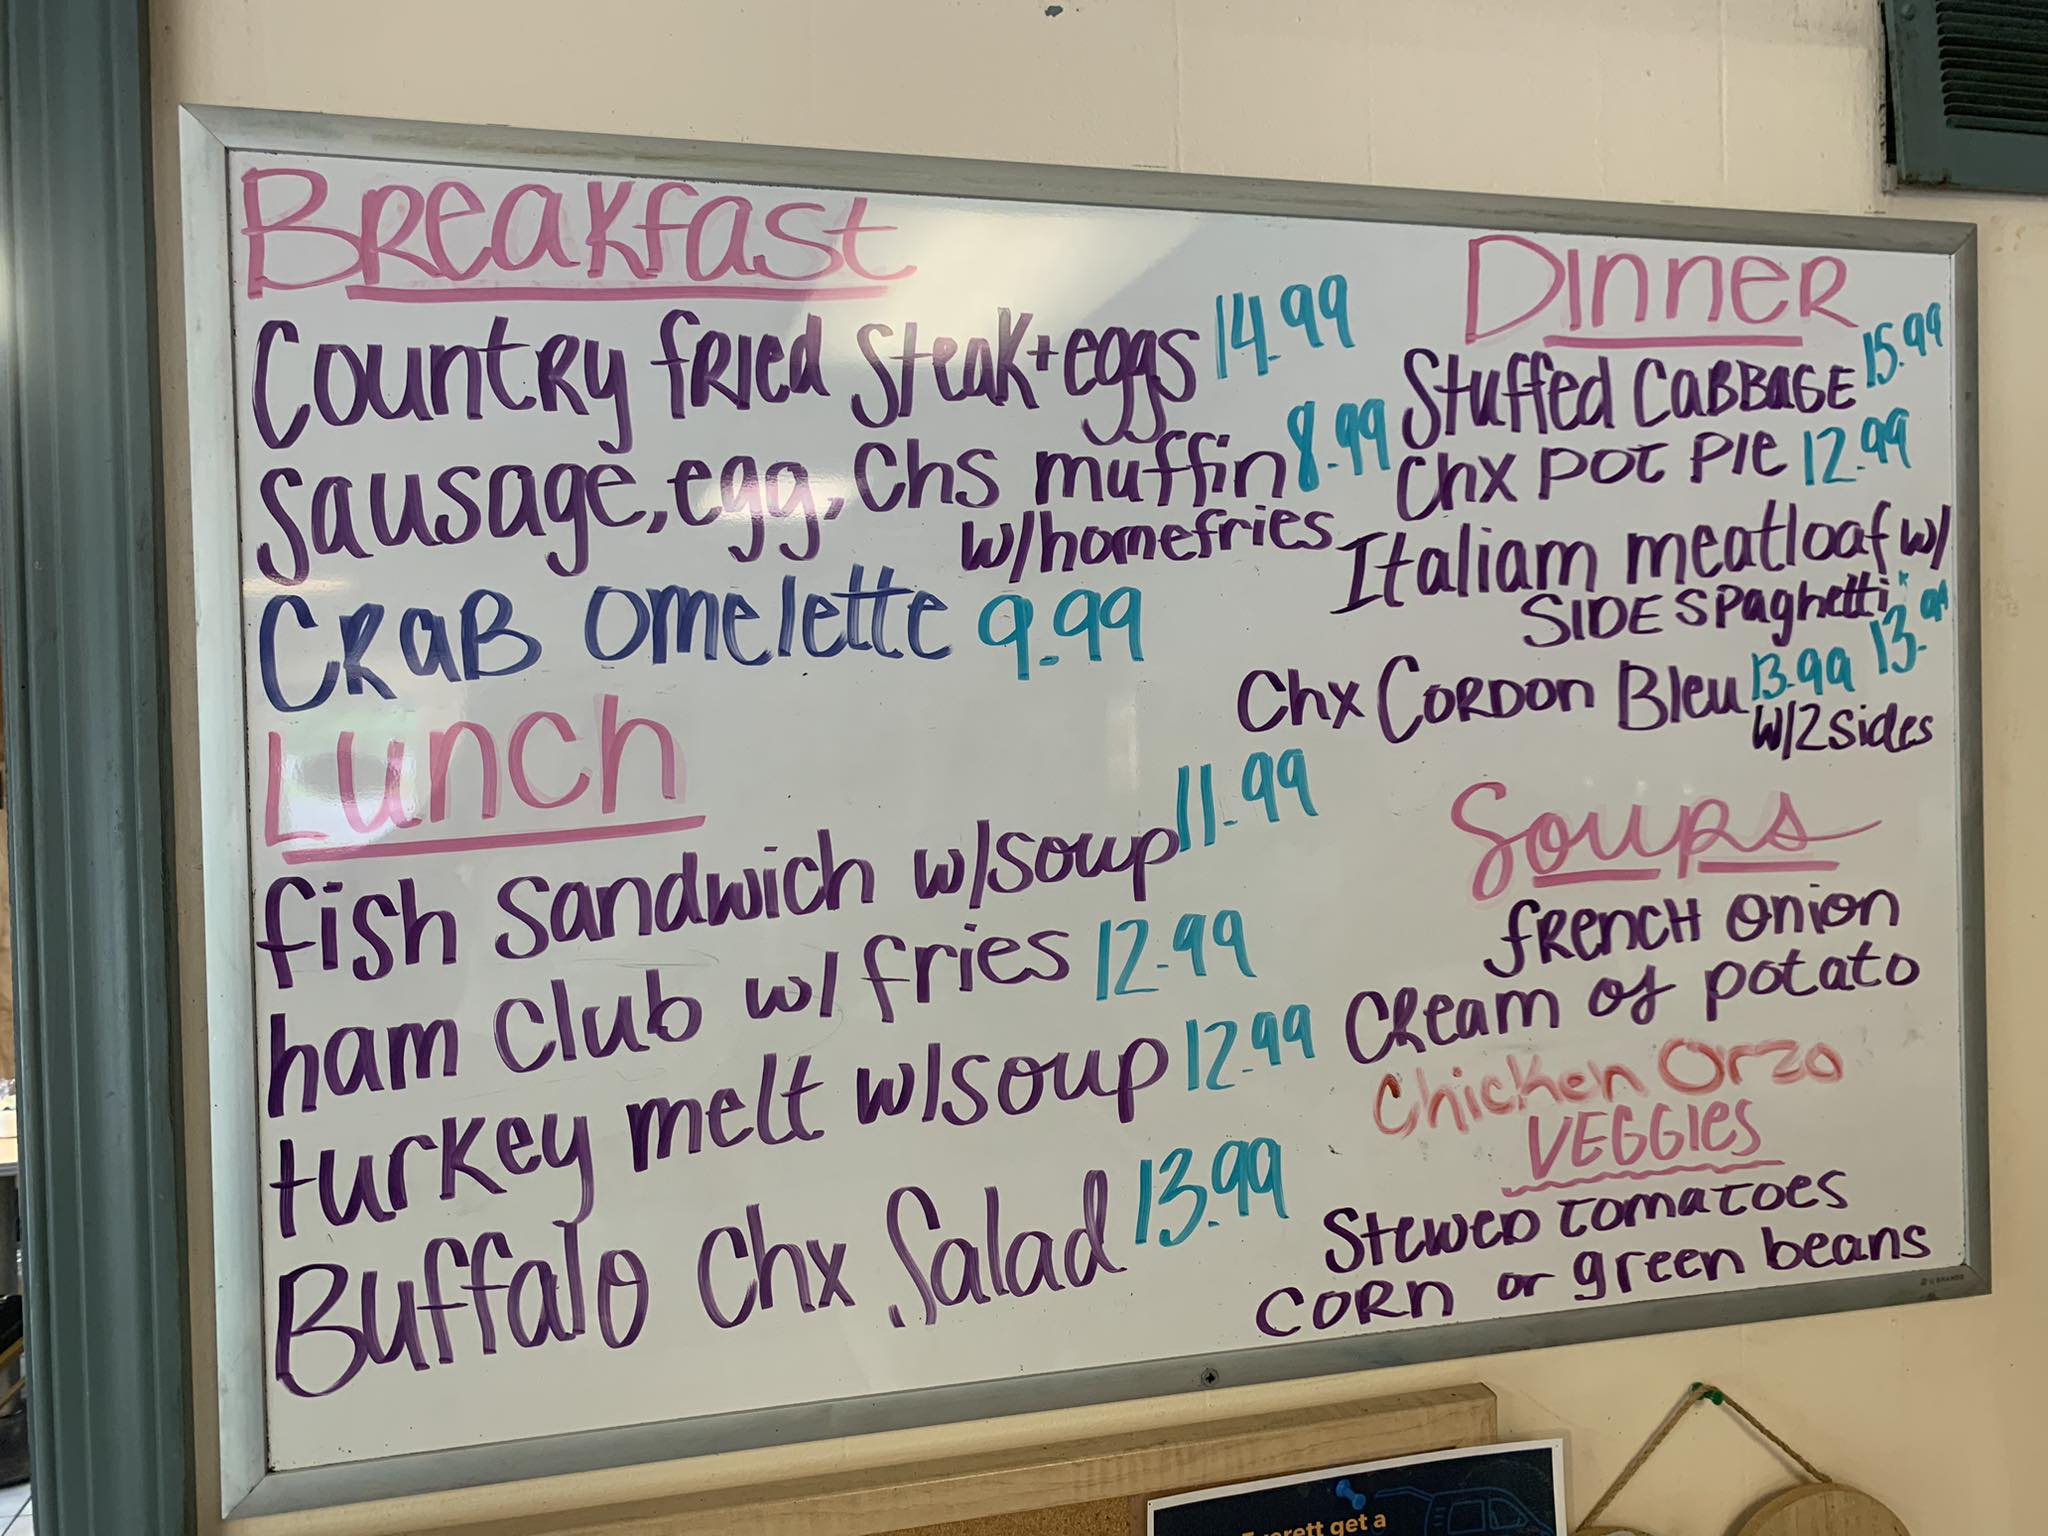 Breakfast
Country fried steak + eggs 14.99
sausage, egg, chs muffin 8.99
w/homefries
CRAB omelette 9.99
Lunch
fish sandwich w/soup 11.99
ham club w/ fries 12.99
turkey melt w/soup 12.99
Buffalo Chx Salad 13.99
Dinner
Stuffed CABBAGE 15.99
Chx POT PIE 12.99
Italiam meatloaf w/
SIDE spaghetti 13.99
Chx Cordon Bleu 13.99
w/2 sides
Soups
French onion
Cream of potato
Chicken Orzo
VEGGIES
Stewed tomatoes
CORN or green beans
U BRANDS
get a